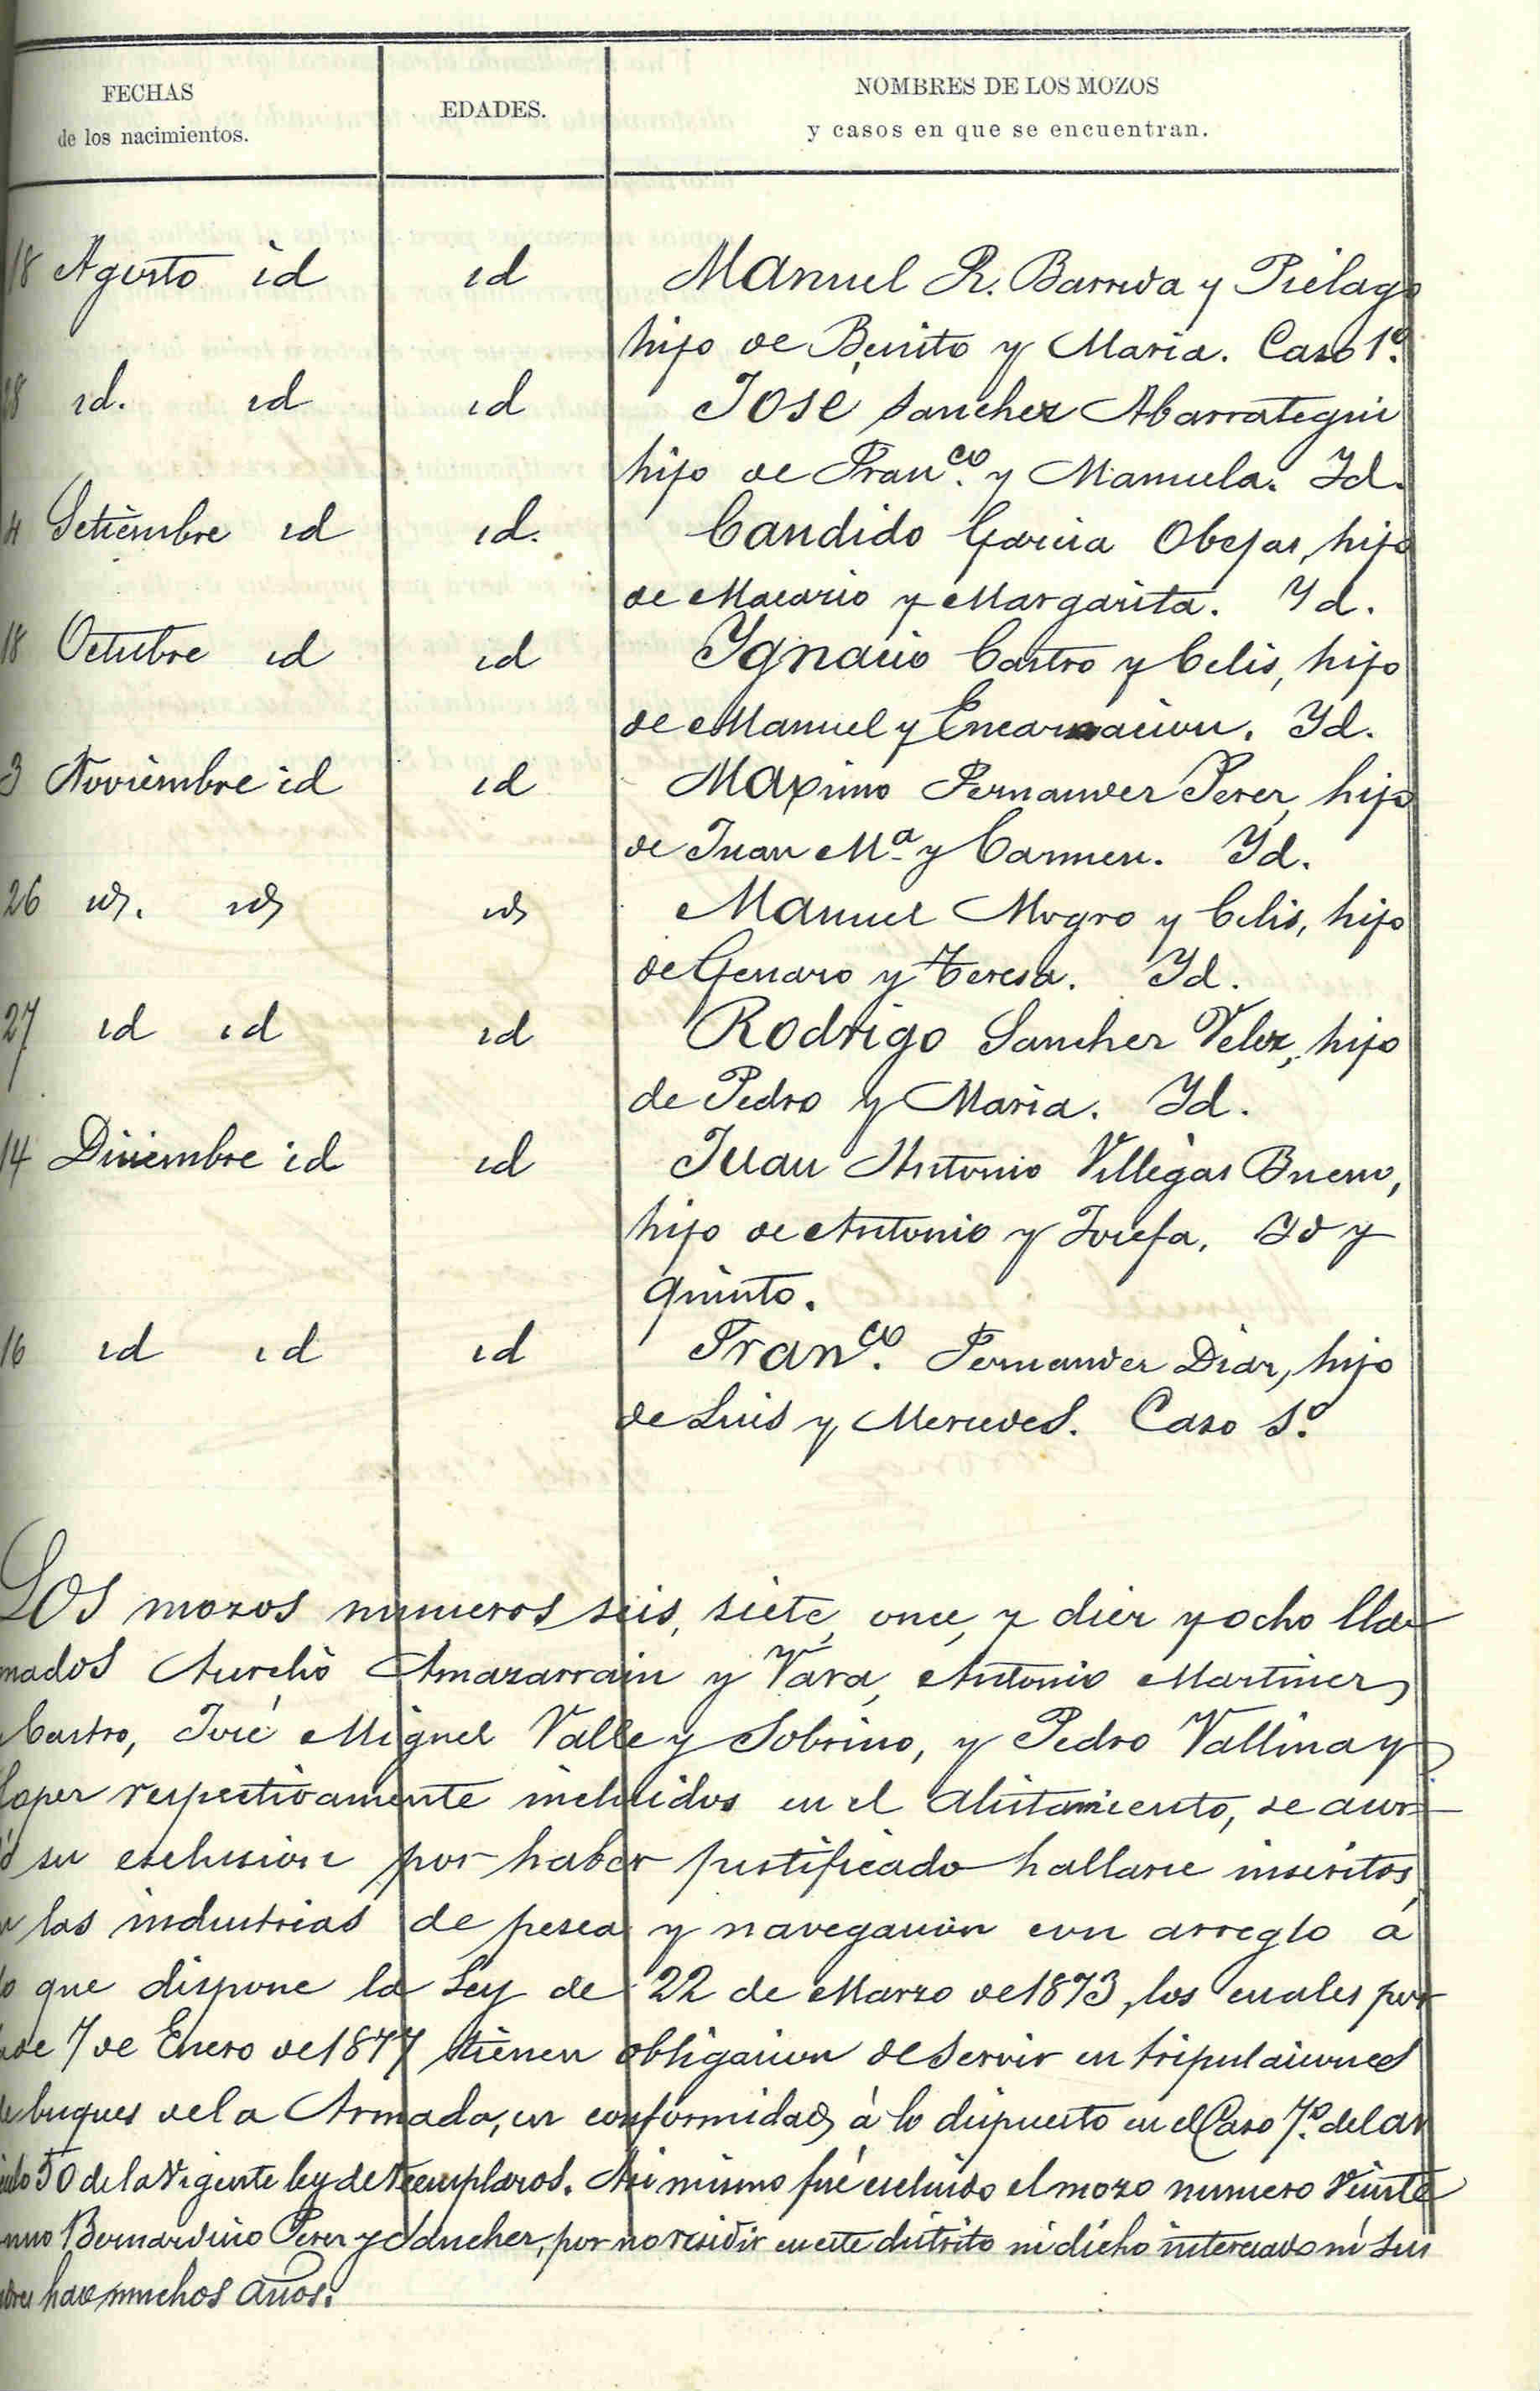 FECHAS
de los nacimientos.
EDADES.
NOMBRES DE LOS MOZOS
y casos en que se encuentran.
18 Agosto id id Manuel R. Barreda y Piélago
hijo de Benito y Maria. Caso 1º.
28 id. id id José Sanchez Abarrategui
hijo de Franco. y Manuela. Yd.
4 Setiembre id id. Candido Garcia Obejas, hijo
de Macario y Margarita. Yd.
18 Octubre id id Ygnacio Castro y Celis, hijo
de Manuel y Encarnacion. Yd.
3 Noviembre id id Maximo Fernandez Perez, hijo
de Juan Mª y Carmen. Yd.
26 id. id id Manuel Mogro y Celis, hijo
de Genaro y Teresa. Yd.
27 id id id Rodrigo Sanchez Velez, hijo
de Pedro y Maria. Yd.
14 Diciembre id id Juan Antonio Villegas Bueno,
hijo de Antonio y Josefa. Yd y
quinto.
16 id id id Franco. Fernandez Diaz, hijo
de Luis y Mercedes. Caso
Los mozos numeros seis, siete, once, y diez y ocho lla-
mados Aurelio Amazarrain y Vara, Antonio Martinez
Castro, José Miguel Valle y Sobrino, y Pedro Vallina y
Lopez respectivamente incluidos en el Alistamiento, se acor-
dó su esclusion por haber justificado hallarse inscritos
en las industrias de pesca y navegacion con arreglo á
lo que dispone la Ley de 22 de Marzo de 1873, los cuales por
de 7 de Enero de 1877 tienen obligacion de servir en tripulaciones
de buques de la Armada, en conformidad á lo dispuesto en el Caso 7º. del ar
ículo 50 de la vigente ley de Reemplazos. Asi mismo fué escluido el mozo numero veinte
uno Bernardino Perez y Sancher, por no residir en este distrito ni dicho interesado ni sus
padres hace muchos años.